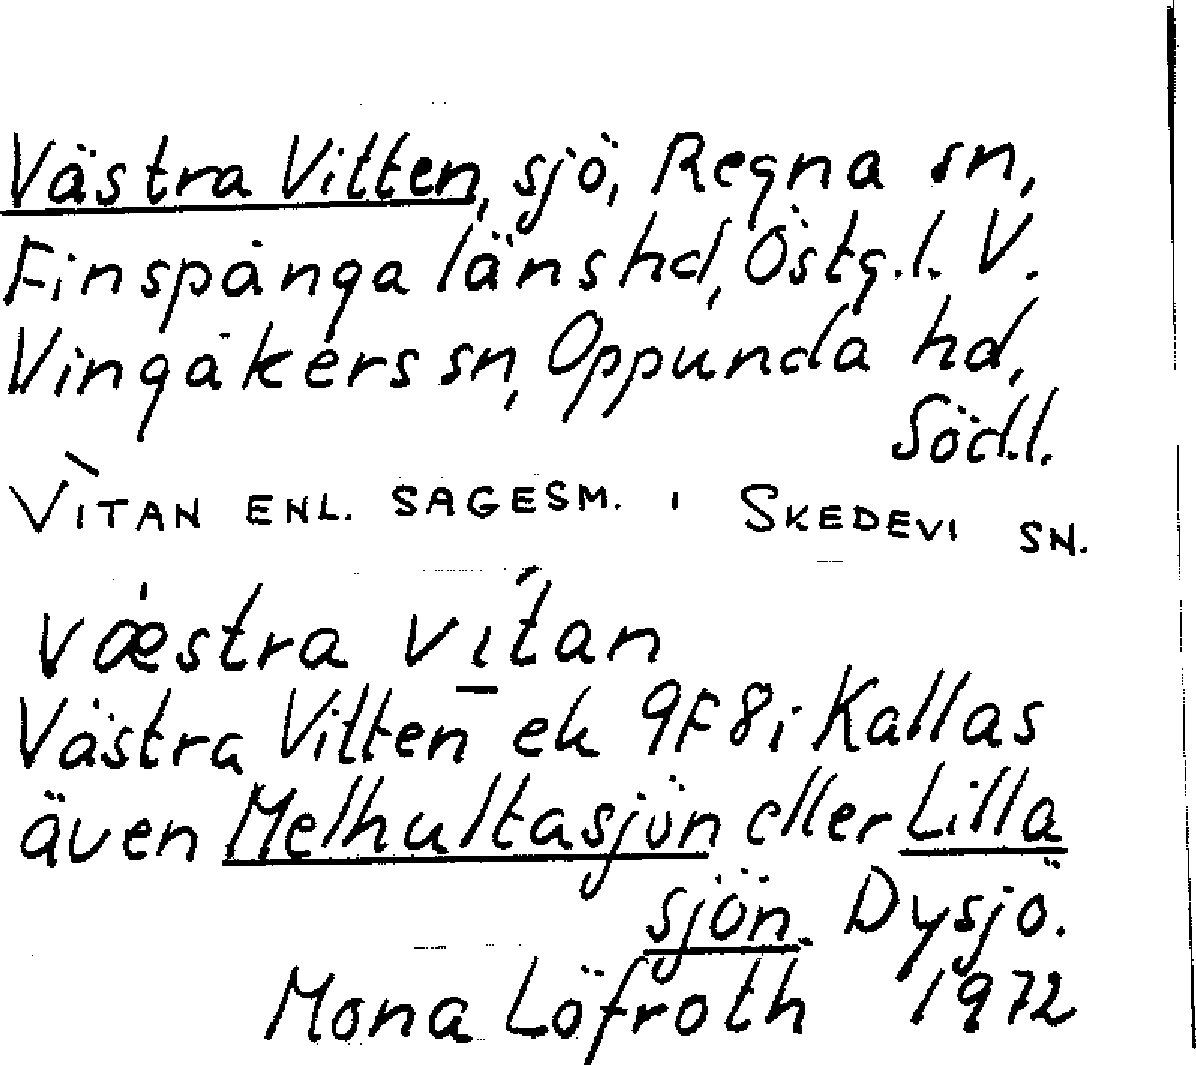 Västra Vitten, sjö, Regna sn,
Finspånga länshd, Östg.l. V.
Vingåkers sn, Oppunda hd,
Söd.l.
VITAN ENL. SAGESM. I SKEDEVI SN.
væstra vitan
Västra Vitten ek 9F8i Kallas
även Melhultasjön eller Lilla
sjön. Dysjö.
Mona Löfroth 1972